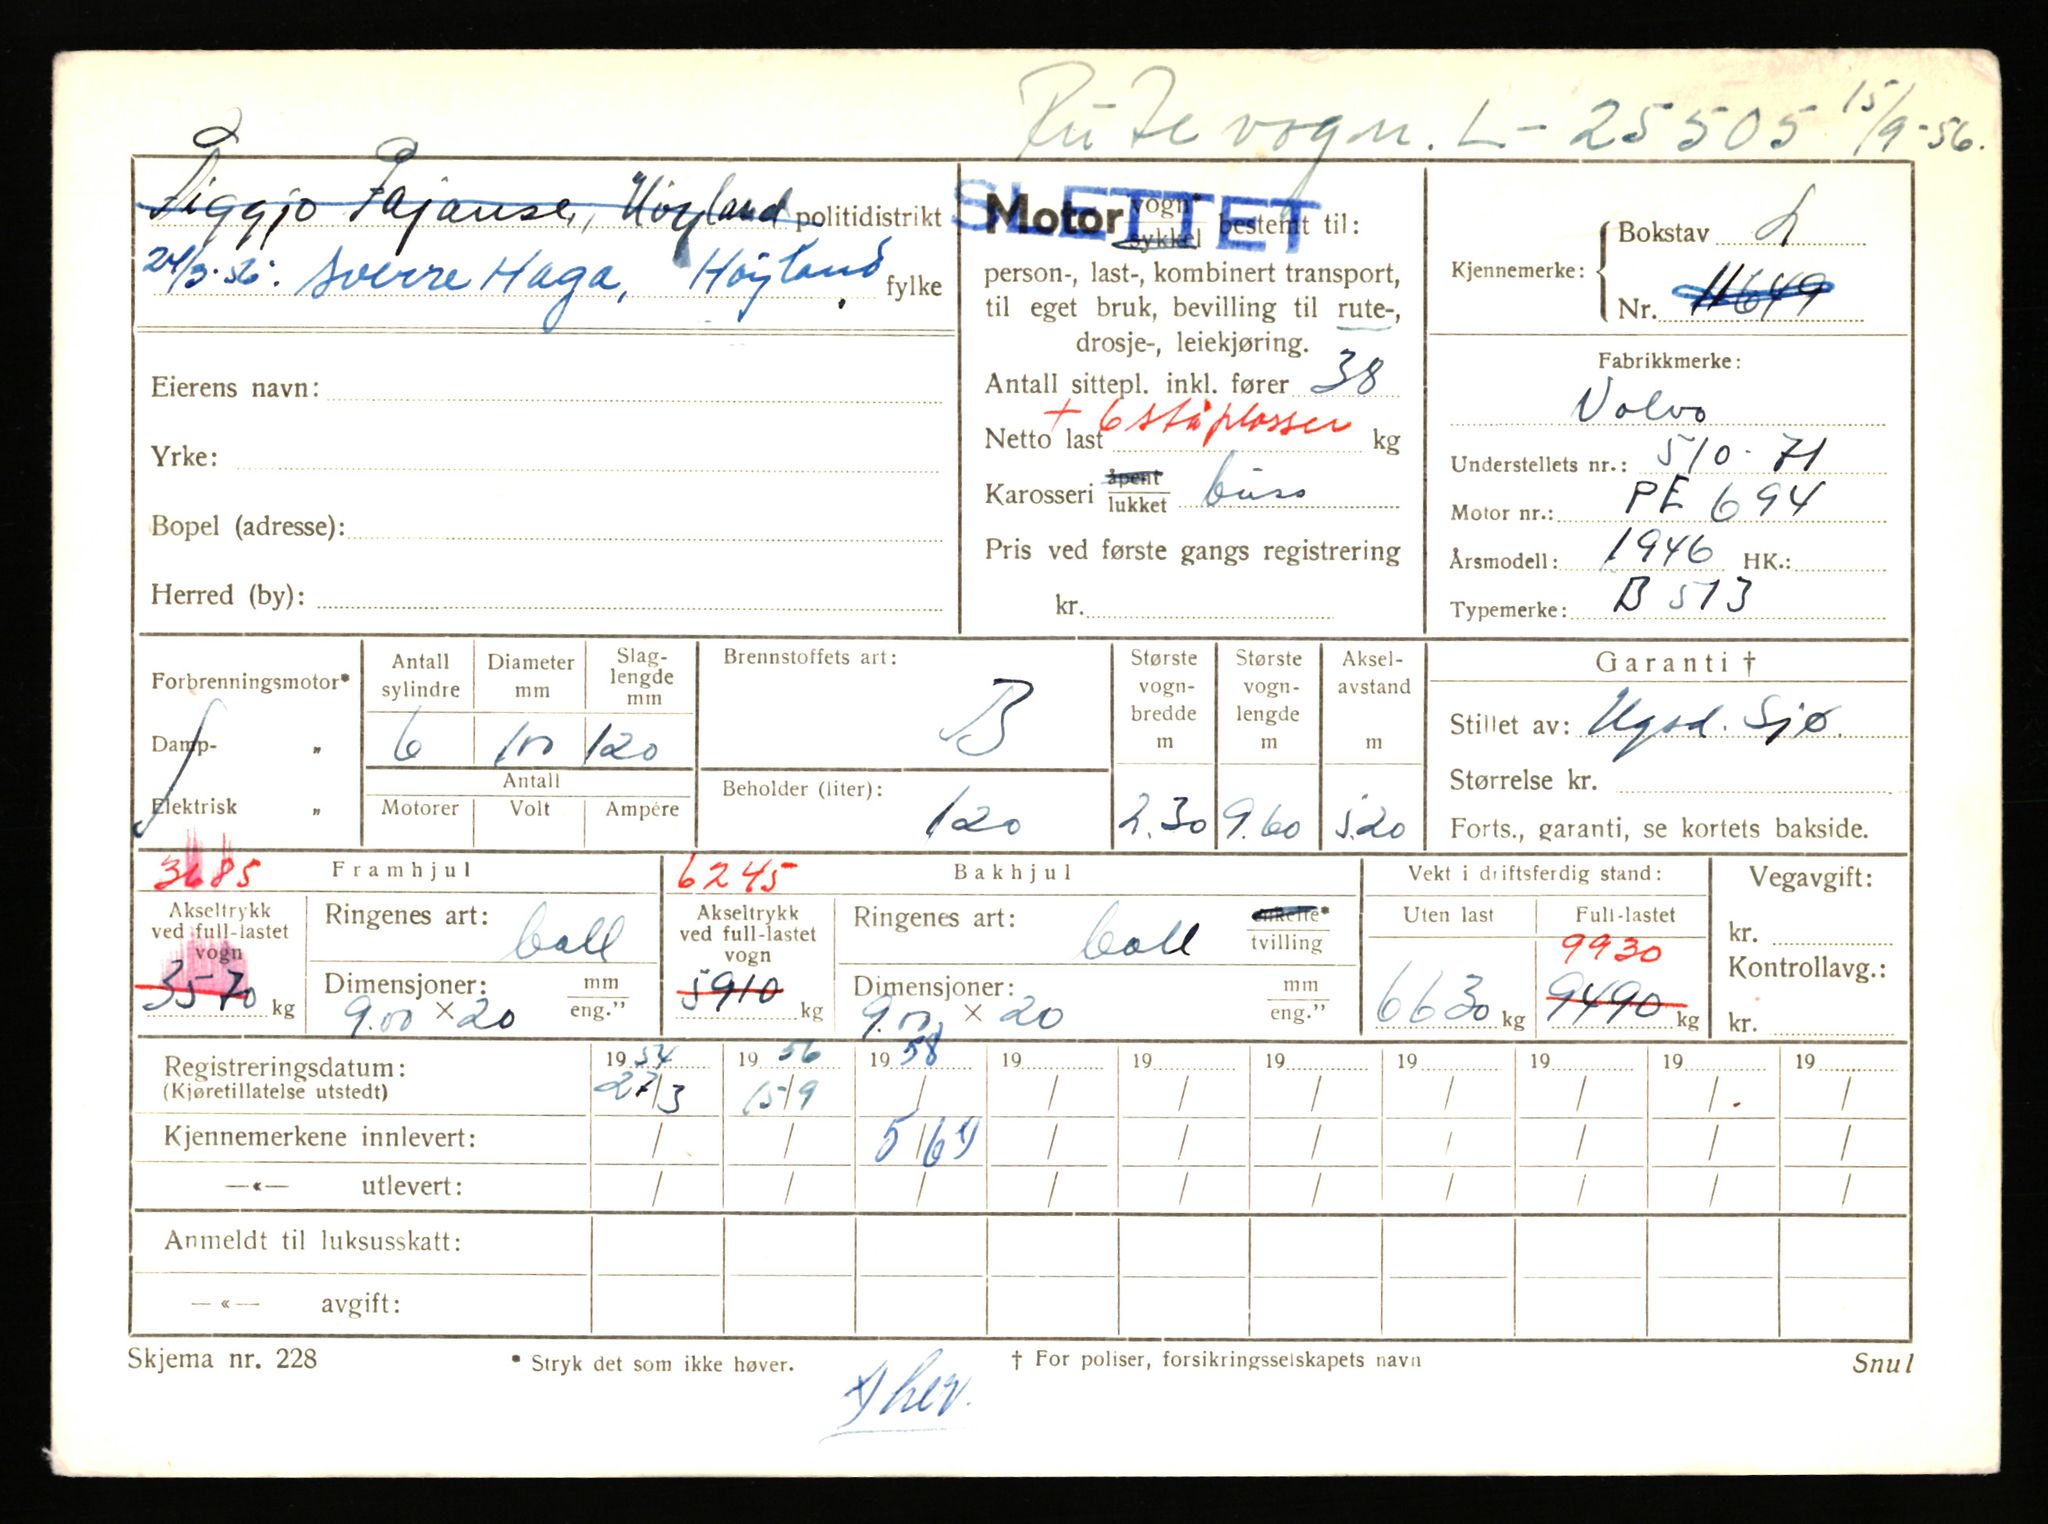 Rutevogn. L-25505 15/9-56.
Figgjo Fajanse, Høyland politidistrikt
24/3-56. Sverre Haga, Høyland fylke
Eierens navn:
Yrke:
Bopel (adresse):
Herred (by):
SLETTET
Motor vogn* sykkel bestemt til:
person-, last-, kombinert transport,
til eget bruk, bevilling til rute-,
drosje-, leiekjøring.
Antall sittepl. inkl. fører 38
+ 6 ståplasser
Netto last kg
Karosseri åpent lukket buss
Pris ved første gangs registrering
kr.
Kjennemerke: Bokstav L
Nr. 11649
Fabrikkmerke:
Volvo
Understellets nr.: 510-71
Motor nr.: PE 694
Årsmodell: 1946 HK.:
Typemerke: B 513
Forbrenningsmotor*
Damp- „
Elektrisk „
Antall sylindre 6
Diameter mm 100
Slag-lengde mm 120
Antall
Motorer Volt Ampére
Brennstoffets art: B
Beholder (liter): 120
Største vogn-bredde m 2.30
Største vogn-lengde m 9.60
Aksel-avstand m 5.20
Garanti †
Stillet av: Ugsd. Sjø.
Størrelse kr.
Forts., garanti, se kortets bakside.
3685 Framhjul
Akseltrykk ved full-lastet vogn 3570 kg
Ringenes art: ball
Dimensjoner: mm eng."
9.00 × 20
6245 Bakhjul
Akseltrykk ved full-lastet vogn 5910 kg
Ringenes art: ball enkelte* tvilling
Dimensjoner: mm eng."
9.00 × 20
Vekt i driftsferdig stand:
Uten last 6630 kg
Full-lastet 9930 9490 kg
Vegavgift:
kr.
Kontrollavg.:
kr.
Registreringsdatum: 1954 1956 1958 19 19 19 19 19 19 19
(Kjøretillatelse utstedt) 27/3 15/9 / / / / / / / /
Kjennemerkene innlevert: / / 5/64 / / / / / / /
—«— utlevert: / / / / / / / / / /
Anmeldt til luksusskatt:
—«— avgift:
Skjema nr. 228 * Stryk det som ikke høver. † For poliser, forsikringsselskapets navn Snul